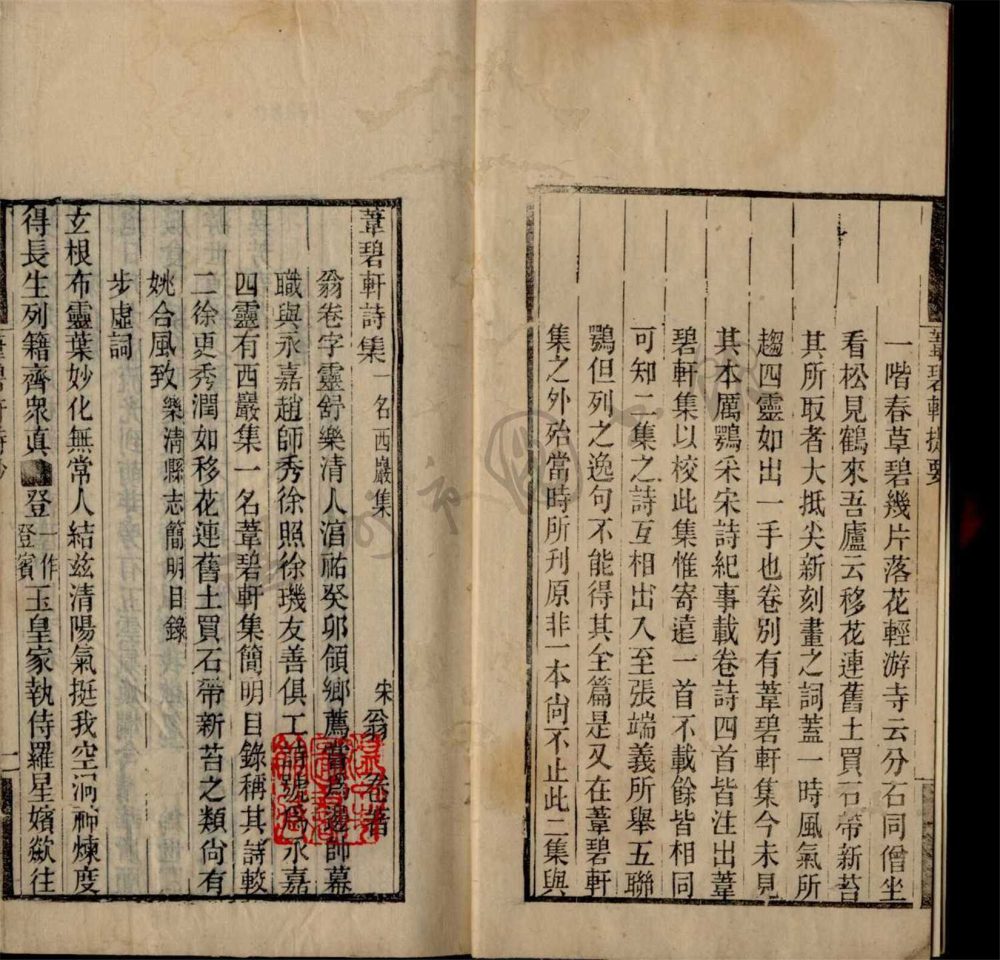 葦碧軒提要
一階春草碧幾片落花輕游寺云分石同僧坐
看松見鶴來吾廬云移花連舊土買石帶新苔
其所取者大抵尖新刻畫之詞蓋一時風氣所
趨四靈如出一手也卷別有葦碧軒集今未見
其本厲鶚宋宋詩紀事載卷詩四首皆注出葦
碧軒集以校此集惟寄遠一首不載餘皆相同
可知二集之詩互相出入至張端義所舉五聯
鶚但列之逸句不能得其全篇是又在葦碧軒
集之外殆當時所刊原非一本尚不止此二集與
葦碧軒詩集一名西巖集
宋翁 卷著
翁卷字靈舒樂清人淳祐癸卯領鄉薦嘗為邊帥幕
職與永嘉趙師秀徐照徐璣友善俱工詩號為永嘉
四靈有西巖集一名葦碧軒集簡明目錄稱其詩較
二徐更秀潤如移花連舊土買石帶新苔之類尚有
姚合風致樂清縣志簡明目錄
步虛詞
玄根布靈葉妙化無常人結兹清陽氣挺我空洞神煉度
得長生列籍齊衆眞登一作登賓玉皇家執侍羅星嬪歘往
一